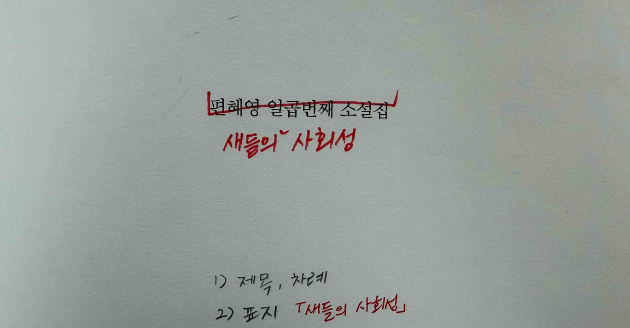 편혜영 일곱번째 소설집
새들의 사회성
1) 제목, 차례
2) 표지 「새들의 사회성」